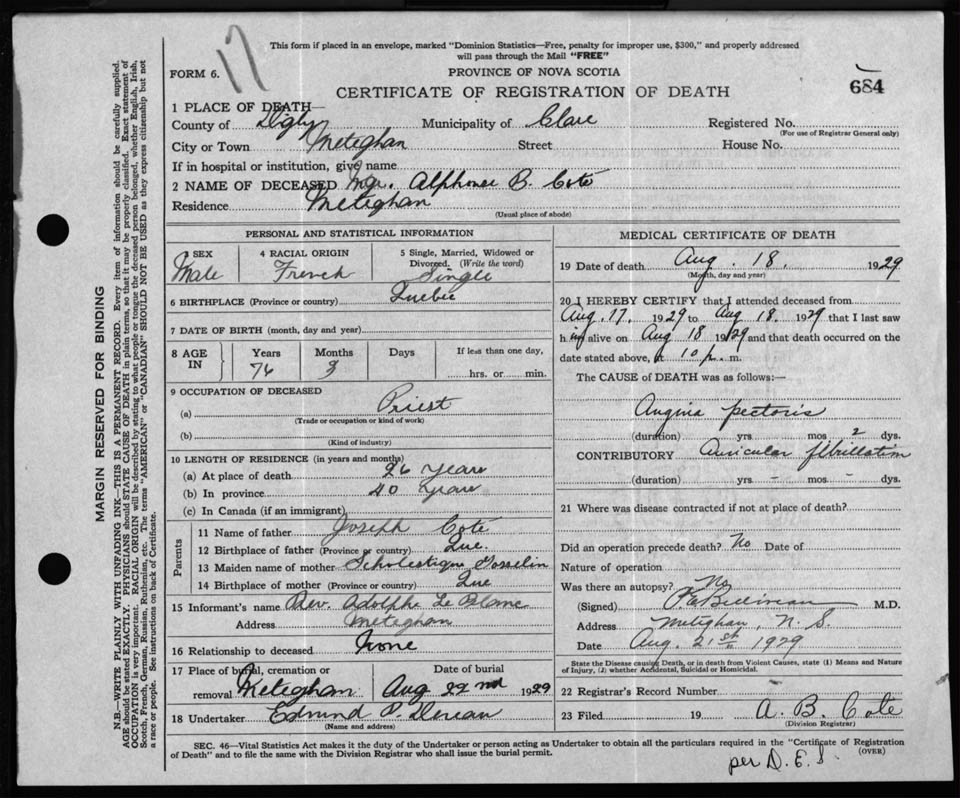 17
This form if placed in an envelope, marked "Dominion Statistics—Free, penalty for improper use, $300," and properly addressed
will pass through the Mail "FREE"
FORM 6.
PROVINCE OF NOVA SCOTIA
684
CERTIFICATE OF REGISTRATION OF DEATH
1 PLACE OF DEATH—
County of Digby Municipality of Clare Registered No.
(For use of Registrar General only)
City or Town Meteghan Street House No.
If in hospital or institution, give name
2 NAME OF DECEASED Mgr. Alphonse B. Cote
Residence Meteghan
(Usual place of abode)
PERSONAL AND STATISTICAL INFORMATION
3 SEX Male
4 RACIAL ORIGIN French
5 Single, Married, Widowed or Divorced. (Write the word) Single
6 BIRTHPLACE (Province or country) Quebec
7 DATE OF BIRTH (month, day and year)
8 AGE IN Years 76 Months 3 Days If less than one day, hrs. or min.
9 OCCUPATION OF DECEASED
(a) Priest
(Trade or occupation or kind of work)
(b)
(Kind of industry)
10 LENGTH OF RESIDENCE (in years and months)
(a) At place of death 26 years
(b) In province 40 years
(c) In Canada (if an immigrant)
Parents
11 Name of father Joseph Cote
12 Birthplace of father (Province or country) Que.
13 Maiden name of mother Scholastique Gosselin
14 Birthplace of mother (Province or country) Que
15 Informant's name Rev. Adolphe Le Blanc
Address Meteghan
16 Relationship to deceased None
17 Place of burial, cremation or removal Meteghan Date of burial Aug 22nd 1929
18 Undertaker Edmund P.
(Name and address)
MEDICAL CERTIFICATE OF DEATH
19 Date of death Aug. 18. 1929
(Month, day and year)
20 I HEREBY CERTIFY that I attended deceased from
Aug. 17. 1929 to Aug 18. 1929 that I last saw
him alive on Aug 18 1929 and that death occurred on the
date stated above, at 10 p. m.
The CAUSE of DEATH was as follows:—
Angina pectoris
(duration) yrs. mos. 2 dys.
CONTRIBUTORY Auricular fibrillation
(duration) yrs. - mos. - dys.
21 Where was disease contracted if not at place of death?
Did an operation precede death? No Date of
Nature of operation
Was there an autopsy? No
(Signed) M.D.
Address Meteghan, N. S.
Date Aug. 21st 1929
State the Disease causing Death, or in death from Violent Causes, state (1) Means and Nature
of Injury, (2) whether Accidental, Suicidal or Homicidal.
22 Registrar's Record Number
23 Filed 19 A. B. Cote
(Division Registrar)
SEC. 46—Vital Statistics Act makes it the duty of the Undertaker or person acting as Undertaker to obtain all the particulars required in the "Certificate of Registration
of Death" and to file the same with the Division Registrar who shall issue the burial permit.
(OVER)
per D. E. S.
MARGIN RESERVED FOR BINDING
N.B.—WRITE PLAINLY WITH UNFADING INK—THIS IS A PERMANENT RECORD. Every item of information should be carefully supplied.
AGE should be stated EXACTLY. PHYSICIANS should STATE CAUSE OF DEATH in plain terms, so that it may be properly classified. Exact statement of
OCCUPATION is very important. RACIAL ORIGIN will be described by stating to what people or tongue the deceased person belonged, whether English, Irish,
Scotch, French, German, Russian, Ruthenian, etc. The terms "AMERICAN" or "CANADIAN" SHOULD NOT BE USED as they express citizenship but not
a race or people. See instructions on back of Certificate.